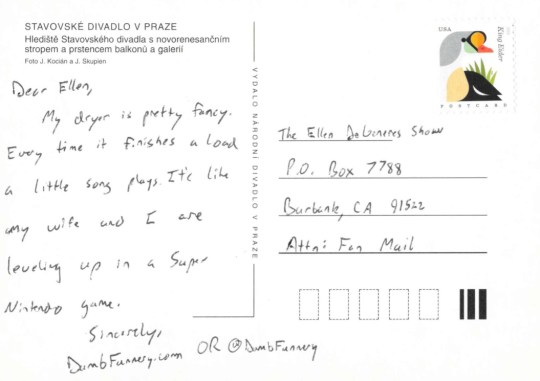 STAVOVSKÉ DIVADLO V PRAZE
Hlediště Stavovského divadla s novorenesančním
stropem a prstencem balkonů a galerií
Foto J. Kocián a J. Skupien
Dear Ellen,
My dryer is pretty fancy.
Every time it finishes a load
a little song plays. It's like
my wife and I are
leveling up in a Super
Nintendo game.
Sincerely,
DumbFunnery.com OR @DumbFunnery
VYDALO NÁRODNÍ DIVADLO V PRAZE
USA
King Eider
POSTCARD
The Ellen DeGeneres Show
P.O. Box 7788
Burbank, CA 91522
Attn: Fan Mail